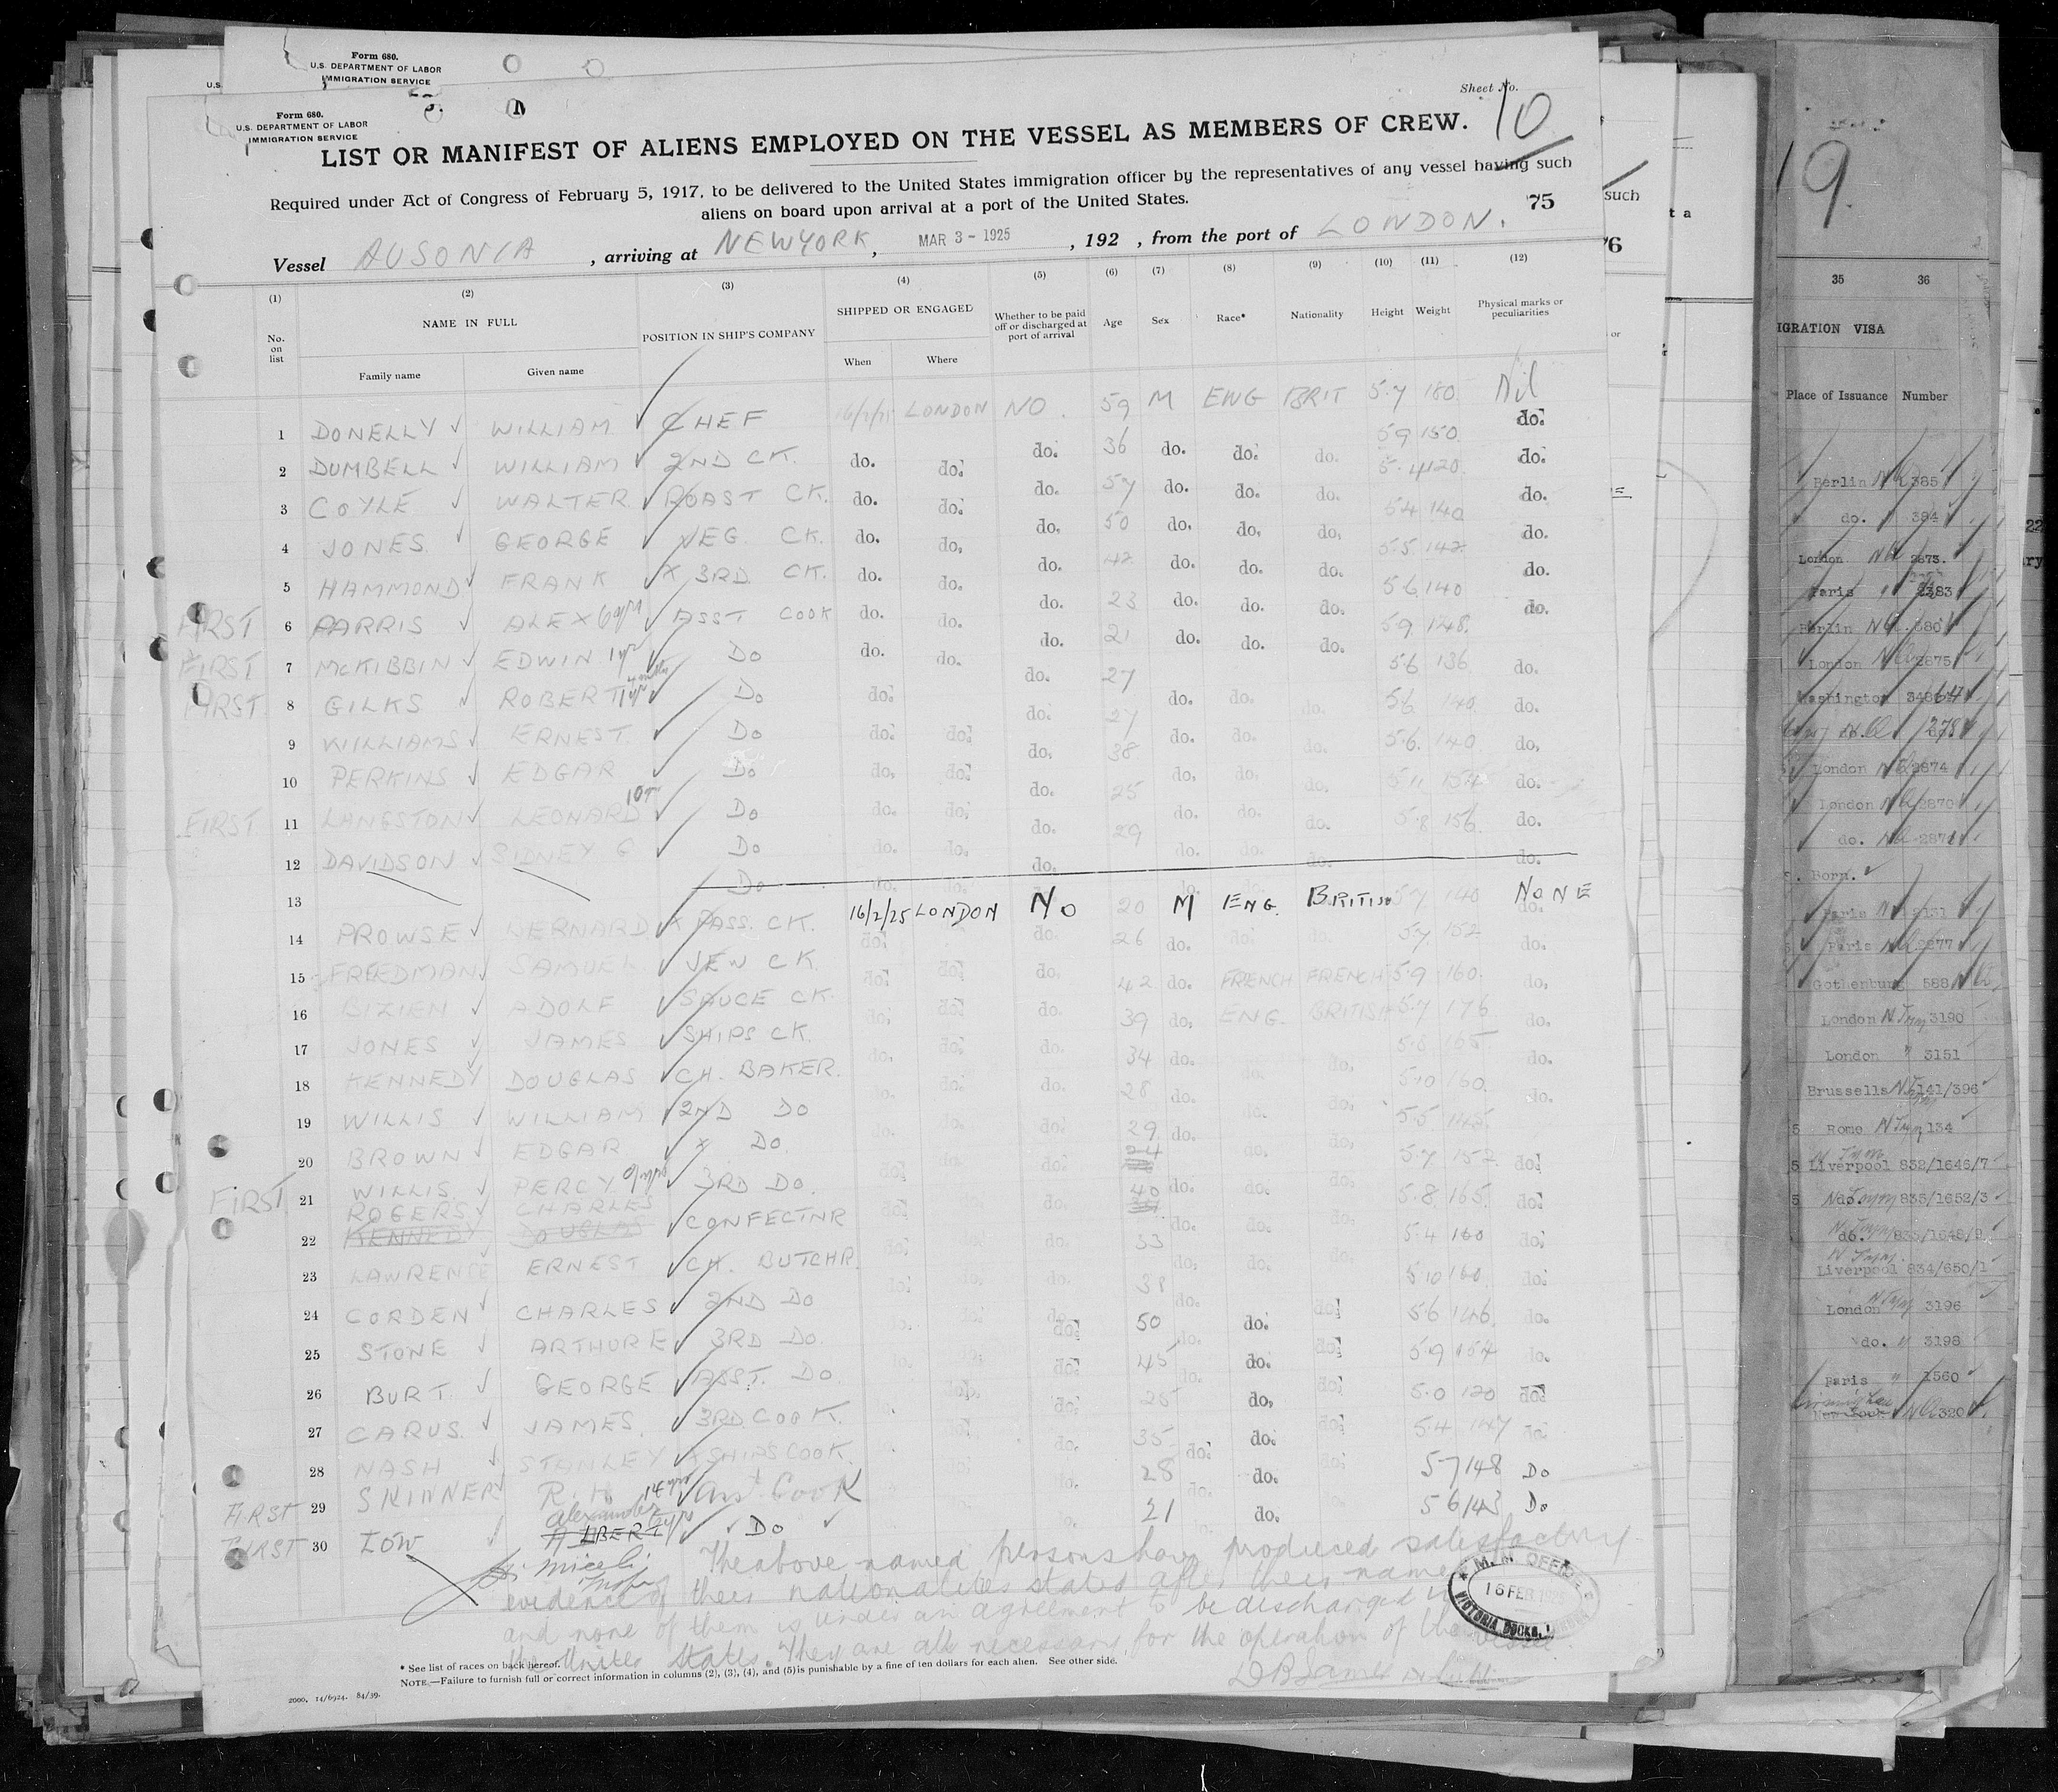 Form 680.
U.S. DEPARTMENT OF LABOR
IMMIGRATION SERVICE
U.S.
Form 680.
U.S. DEPARTMENT OF LABOR
IMMIGRATION SERVICE
Sheet No. 10
LIST OR MANIFEST OF ALIENS EMPLOYED ON THE VESSEL AS MEMBERS OF CREW.
Required under Act of Congress of February 5, 1917, to be delivered to the United States immigration officer by the representatives of any vessel having such
aliens on board upon arrival at a port of the United States.
75
Vessel AUSONIA, arriving at NEW YORK, MAR 3 - 1925, 192 , from the port of LONDON.
(1) (2) (3) (4) (5) (6) (7) (8) (9) (10) (11) (12)
No. on list
NAME IN FULL
Family name Given name
POSITION IN SHIP'S COMPANY
SHIPPED OR ENGAGED
When Where
Whether to be paid off or discharged at port of arrival
Age Sex Race* Nationality Height Weight
Physical marks or peculiarities
1 DONELLY WILLIAM CHEF 16/2/25 LONDON NO. 59 M ENG BRIT 5.7 180 Nil
2 DUMBELL WILLIAM 2ND CK. do. do. do. 36 do. do. do. 5 9 150 do.
3 COYLE WALTER ROAST CK. do. do. do. 57 do. do. do. 5.4 120 do.
4 JONES GEORGE VEG. CK. do. do. do. 50 do. do. do. 5 4 140 do.
5 HAMMOND FRANK X 3RD CK. do. do. do. 42 do. do. do. 5.5 142 do.
FIRST 6 PARRIS ALEX 6 yrs ASST COOK do. do. do. 23 do. do. do. 5 6 140 do.
FIRST 7 McKIBBIN EDWIN 1 yr Do do. do. do. 21 do. do. do. 5 9 148 do.
FIRST 8 GILKS ROBERT Do do. do. 27 do. do. do. 5 6 136 do.
9 WILLIAMS ERNEST Do do. do. do. 27 do. do. do. 5 6 140 do.
10 PERKINS EDGAR Do do. do. do. 38 do. do. do. 5.6 140 do.
FIRST 11 LANGSTON LEONARD Do do. do. do. 25 do. do. do. 5 11 154 do.
12 DAVIDSON SIDNEY G Do do. do. do. 29 do. do. do. 5.8 156 do.
13 Do do. do. do. do.
14 PROWSE BERNARD X PASS. CK. 16/2/25 LONDON No 20 M ENG. BRITISH 5 7 140 NONE
15 FREEDMAN SAMUEL JEW CK. do. do. do. 26 do. do. do. 5.7 152 do.
16 BIZIEN ADOLF SAUCE CK. do. do. do. 42 do. FRENCH FRENCH 5.9 160 do.
17 JONES JAMES SHIPS CK. do. do. do. 39 do. ENG. BRITISH 5.7 176 do.
18 KENNEDY DOUGLAS CH. BAKER. do. do. do. 34 do. do. do. 5.8 165 do.
19 WILLIS WILLIAM 2ND DO do. do. do. 28 do. do. do. 5.10 160 do.
20 BROWN EDGAR X DO. do. do. do. 29 do. do. do. 5.5 145
FIRST 21 WILLIS PERCY 3RD DO. do. do. do. 24 do. do. do. 5.7 152 do.
22 ROGERS CHARLES CONFECTNR do. do. do. 40 do. do. do. 5.8 165 do.
KENNEDY DOUGLAS
23 LAWRENCE ERNEST CH. BUTCHR. do. do. do. 33 do. do. do. 5.4 160 do.
24 CORDEN CHARLES 2ND DO do. do. do. 38 do. 5.10 160 do.
25 STONE ARTHUR E 3RD DO. do. do. do. 50 do. do. do. 5.6 146 do.
26 BURT. GEORGE ASST. DO do. do. do. 45 do. do. do. 5.9 154 do.
27 CARUS. JAMES. 3RD COOK. do. do. 25 do. do. 5.0 120 do.
28 NASH STANLEY SHIPS COOK. do. do. 35 do. do. do. 5.4 147 do.
FIRST 29 SKINNER R. H. 14 yrs Asst. Cook do. do. 28 do. do. 5 7 148 Do
FIRST 30 LOW Alexander ALBERT Do 21 do. 5 6 143 Do
The above named persons have produced satisfactory
evidence of their nationalities stated after their names
and none of them is under an agreement to be discharged in
the United States. They are all necessary for the operation of the vessel.
M.M. OFFICE
16 FEB 1925
VICTORIA DOCKS,
* See list of races on back hereof.
NOTE.—Failure to furnish full or correct information in columns (2), (3), (4), and (5) is punishable by a fine of ten dollars for each alien. See other side.
2000. 14/6924. 84/39.
such
76
19.
35 36
IGRATION VISA
Place of Issuance Number
Berlin 385
do. 384
London 2873.
Paris 2383
Berlin 380
London 2875
Washington
London 2874
London 2870
do. 2871
Born.
Paris 2131
Paris 2277
Gothenburg 588
London 3190
London " 3151
Brussells 141/396
Rome 134
Liverpool 832/1646/7
do. 835/1652/3
do. 833/1648/9
Liverpool 834/650/1
London 3196
do. " 3198
Paris " 1560
New York 320